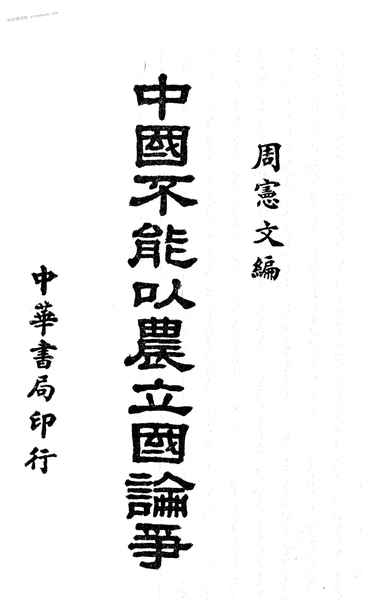 周憲文編
中國不能以農立國論爭
中華書局印行